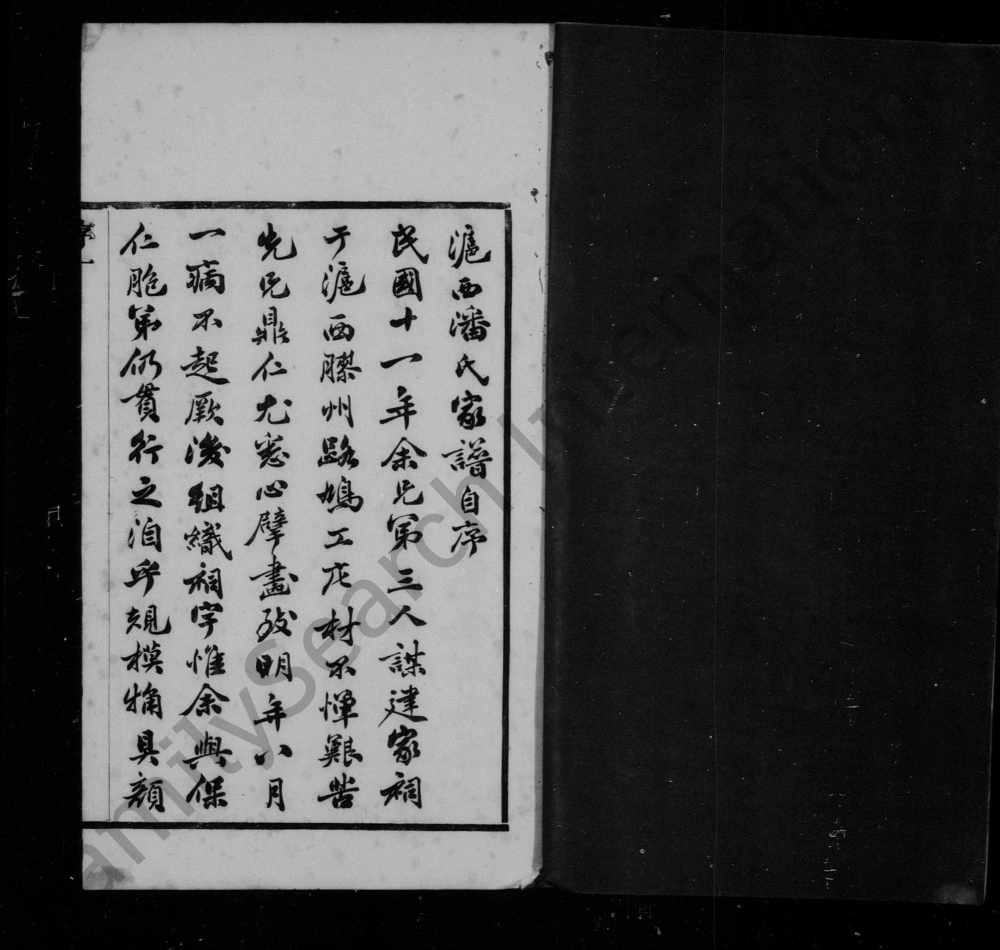 滬西潘氏家譜自序
民國十一年余兄弟三人謀建家祠
于滬西膠州路鳩工庀材不憚艱苦
先兄鼎仁尤悉心擘畫致明年八月
一病不起厥後組織祠宇惟余與保
仁胞弟仍貫行之洎乎規模觕具顏
序一
FamilySearch International